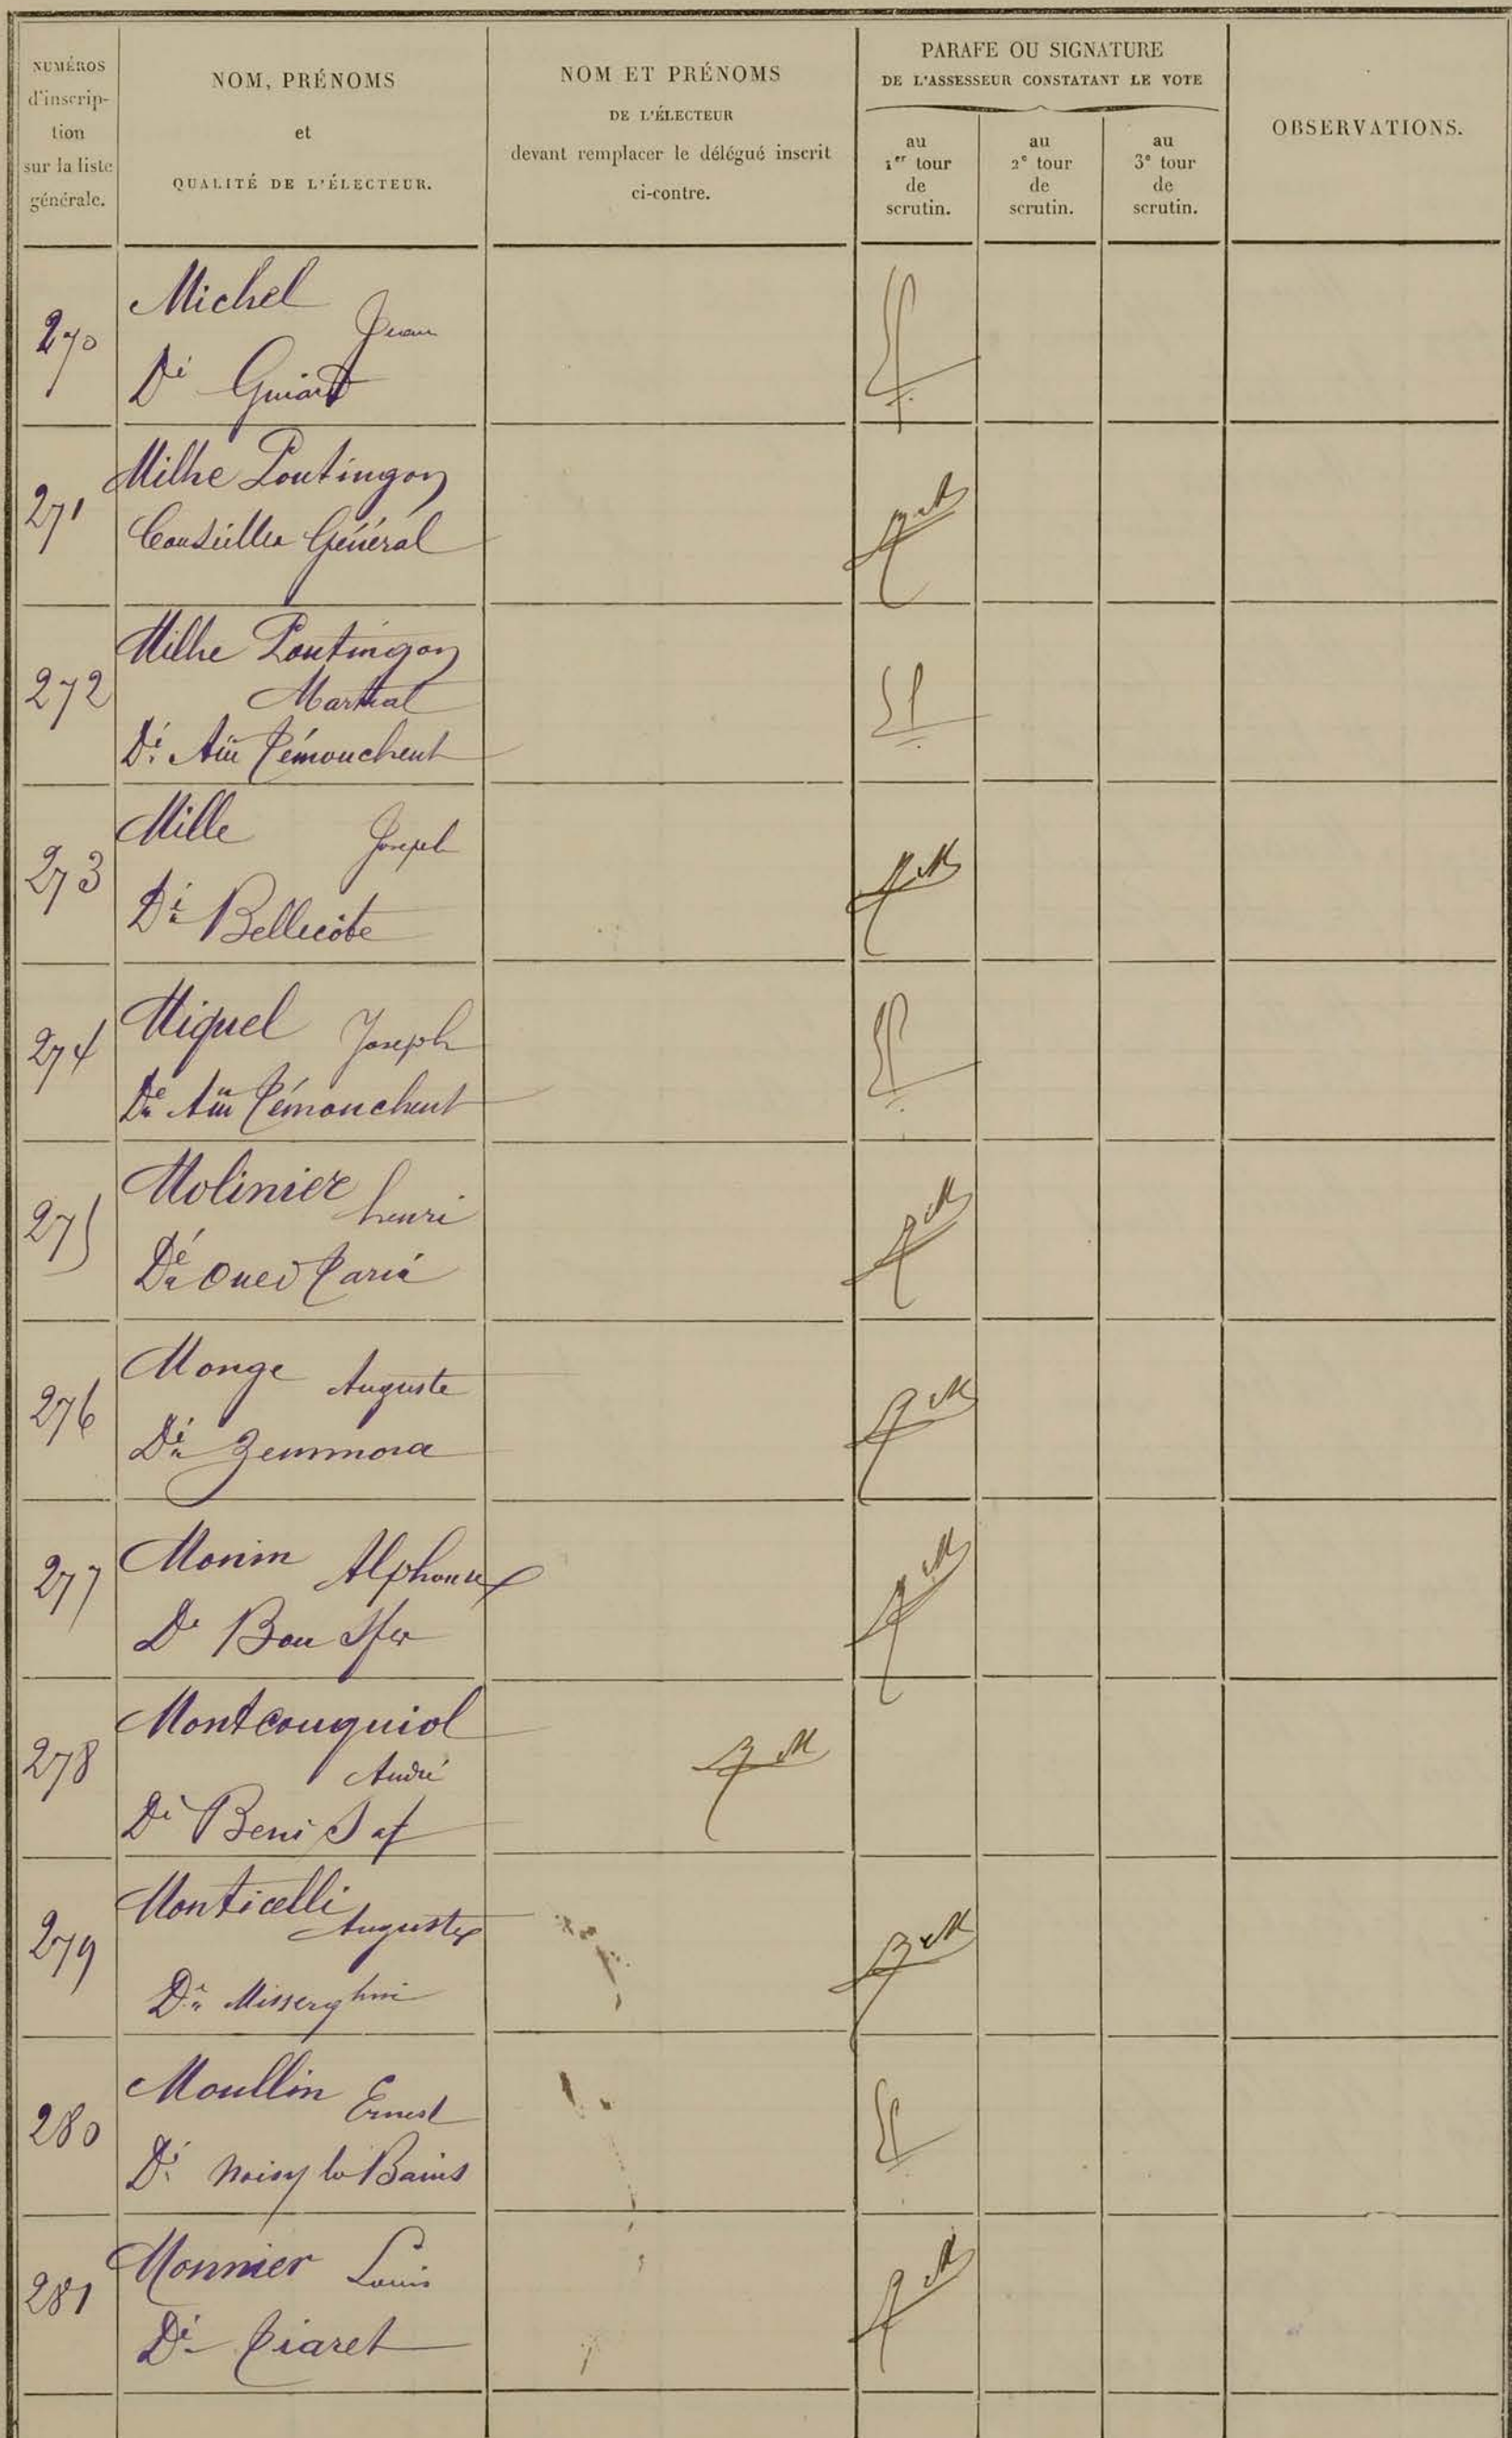 NUMÉROS
d'inscrip-
tion
sur la liste
générale.
NOM, PRÉNOMS
et
QUALITÉ DE L'ÉLECTEUR.
NOM ET PRÉNOMS
DE L'ÉLECTEUR
devant remplacer le délégué inscrit
ci-contre.
PARAFE OU SIGNATURE
DE L'ASSESSEUR CONSTATANT LE VOTE
au
1er tour
de
scrutin.
au
2e tour
de
scrutin.
au
3e tour
de
scrutin.
OBSERVATIONS.
270
Michel
Jean
Dé Guiard
271
Milhe Poutingon
Conseiller Général
272
Milhe Poutingon
Martial
Dé Aïn Témouchent
273
Mille Joseph
Dé Bellecôte
274
Miquel Joseph
Dé Aïn Témouchent
275
Molinier henri
Dé Oued Taria
276
Monge Auguste
Dé Zemmora
277
Monin Alphonse
Dé Bou Sfer
278
Montcouquiol
André
Dé Beni Saf
279
Monticelli
Auguste
Dé Misserghin
280
Moullin Ernest
Dé Noisy les Bains
281
Monnier Louis
Dé Tiaret